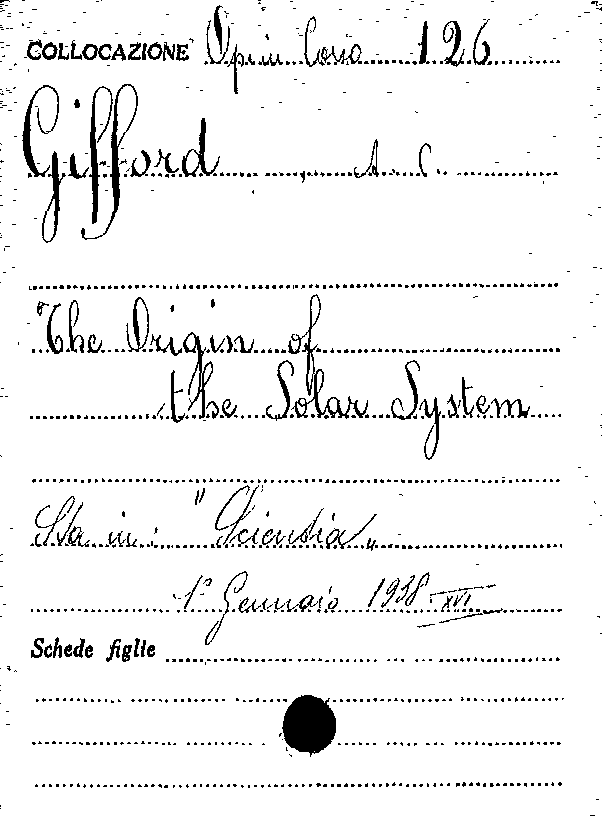 COLLOCAZIONE 126
Gifford, A. C.
The Origin of
the Solar System
Sta in: "Scientia„
1° Gennaio 1938-XVI
Schede figlie